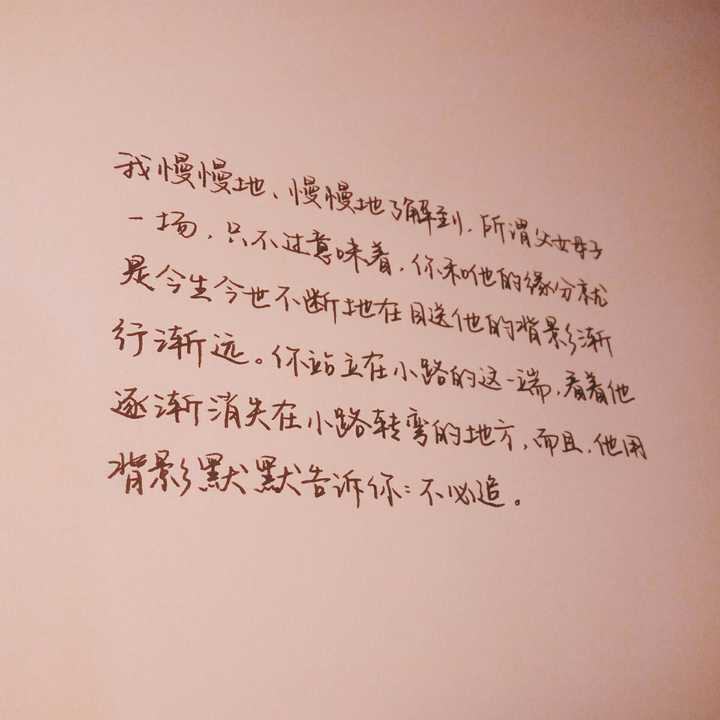 我慢慢地、慢慢地了解到，所谓父女母子
一场，只不过意味着，你和他的缘分就
是今生今世不断地在目送他的背影渐
行渐远。你站立在小路的这一端，看着他
逐渐消失在小路转弯的地方，而且，他用
背影默默告诉你：不必追。